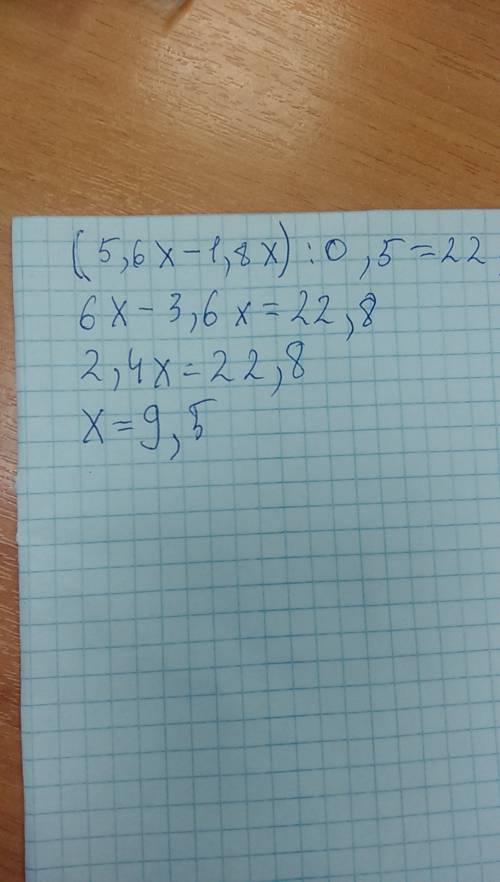 (5,6x-1,8x):0,5=22,
6x-3,6x=22,8
2,4x=22,8
x=9,5